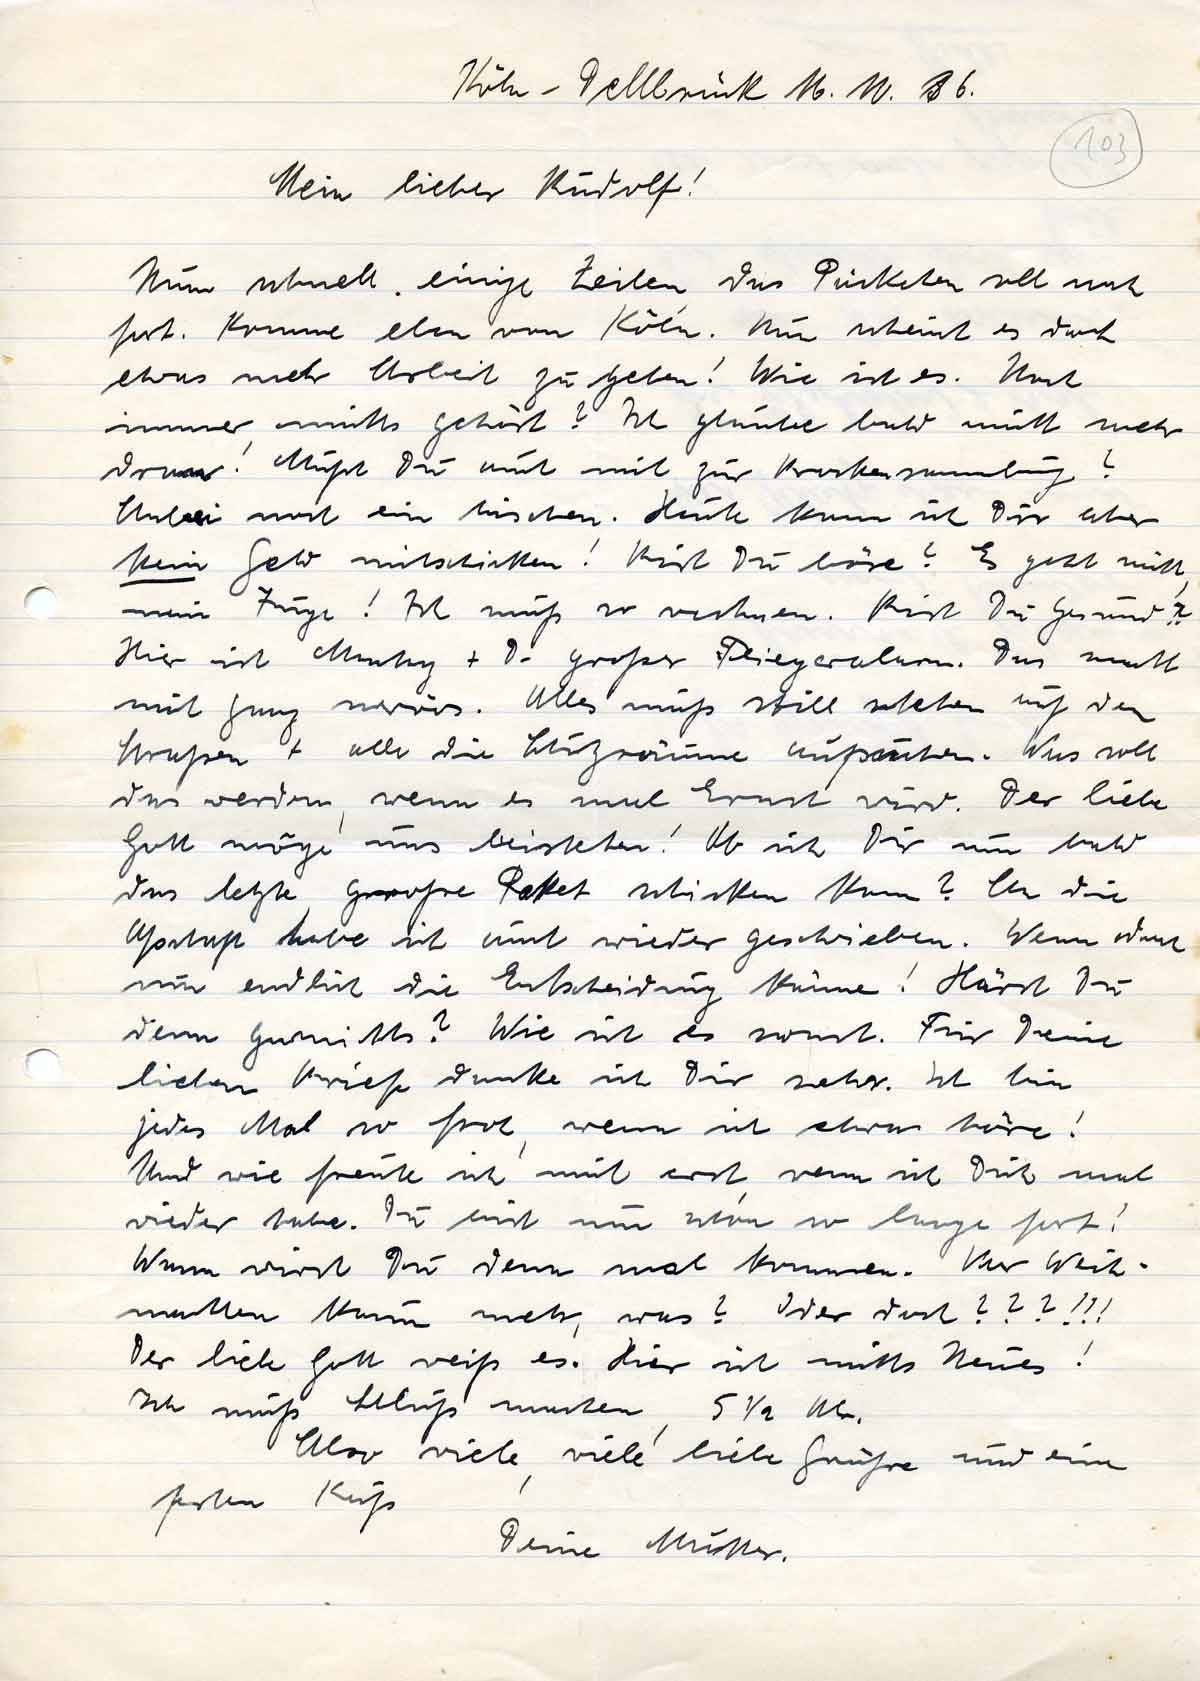 Köln-Dellbrück 16. 11. 36.
103
Mein lieber Rudolf!
Nun schnell einige Zeilen, das Päckchen soll noch
fort. Komme eben von Köln. Nun scheint es doch
etwas mehr Arbeit zu geben! Wie ist es. Noch
immer nichts gehört? Ich glaube bald nicht mehr
dran! Mußt Du auch mit zur Brockensammlung?
Anbei noch ein bischen. Heute kann ich Dir aber
kein Geld mitschicken! Bist Du böse? Es geht nicht,
mein Junge! Ich muß so rechnen. Bist Du gesund?
Hier ist Montag + D. großer Fliegeralarm. Das macht
mich ganz nervös. Alles muß still stehen auf den
Straßen + alle die Schutzräume aufsuchen. Was soll
das werden, wenn es mal Ernst wird. Der liebe
Gott möge uns beistehen! Ob ich Dir nun bald
das letzte große Paket schicken kann? An die
habe ich auch wieder geschrieben. Wenn doch
nun endlich die Entscheidung käme! Hörst Du
denn garnichts? Wie ist es sonst. Für Deine
lieben Briefe danke ich Dir sehr. Ich bin
jedes Mal so froh, wenn ich etwas höre!
Und wie freute ich mich erst, wenn ich Dich mal
wieder habe. Du bist nun schon so lange fort!
Wann wirst Du denn mal kommen. Vor Weih-
nachten kaum mehr, was? Oder doch???!!!
Der liebe Gott weiß es. Hier ist nichts Neues!
Ich muß Schluß machen, 5 1/2 Uhr.
Also viele, viele liebe Grüße und ein
festen Kuß
Deine Mutter.